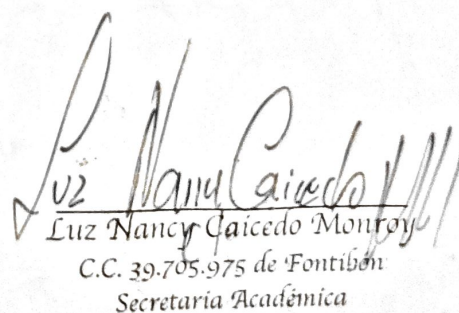 Luz Nancy Caicedo M
Luz Nancy Caicedo Monroy
C.C. 39.705.975 de Fontibón
Secretaria Académica